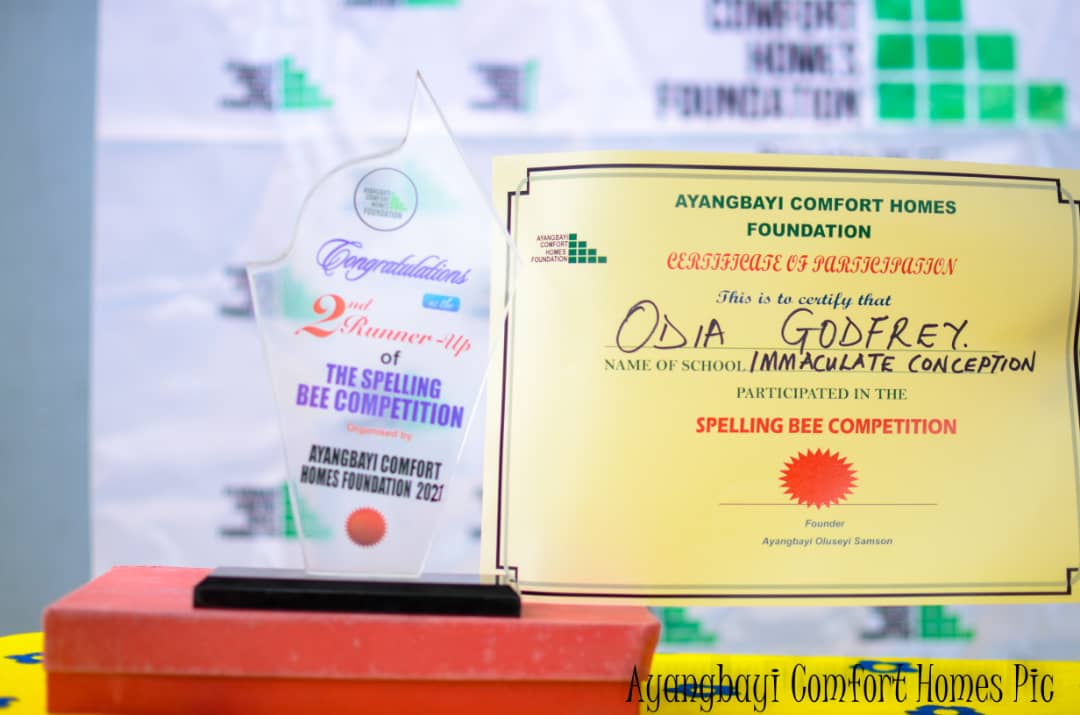 COMFORT
HOMES
FOUNDATION
AYANGBAYI
COMFORT
HOMES
FOUNDATION
Congratulations
as the
2nd
Runner-Up
of
THE SPELLING
BEE COMPETITION
Organised by
AYANGBAYI COMFORT
HOMES FOUNDATION 2021
AYANGBAYI
COMFORT
HOMES
FOUNDATION
AYANGBAYI COMFORT HOMES
FOUNDATION
CERTIFICATE OF PARTICIPATION
This is to certify that
ODIA GODFREY.
NAME OF SCHOOL IMMACULATE CONCEPTION
PARTICIPATED IN THE
SPELLING BEE COMPETITION
Founder
Ayangbayi Oluseyi Samson
Ayangbayi Comfort Homes Pic